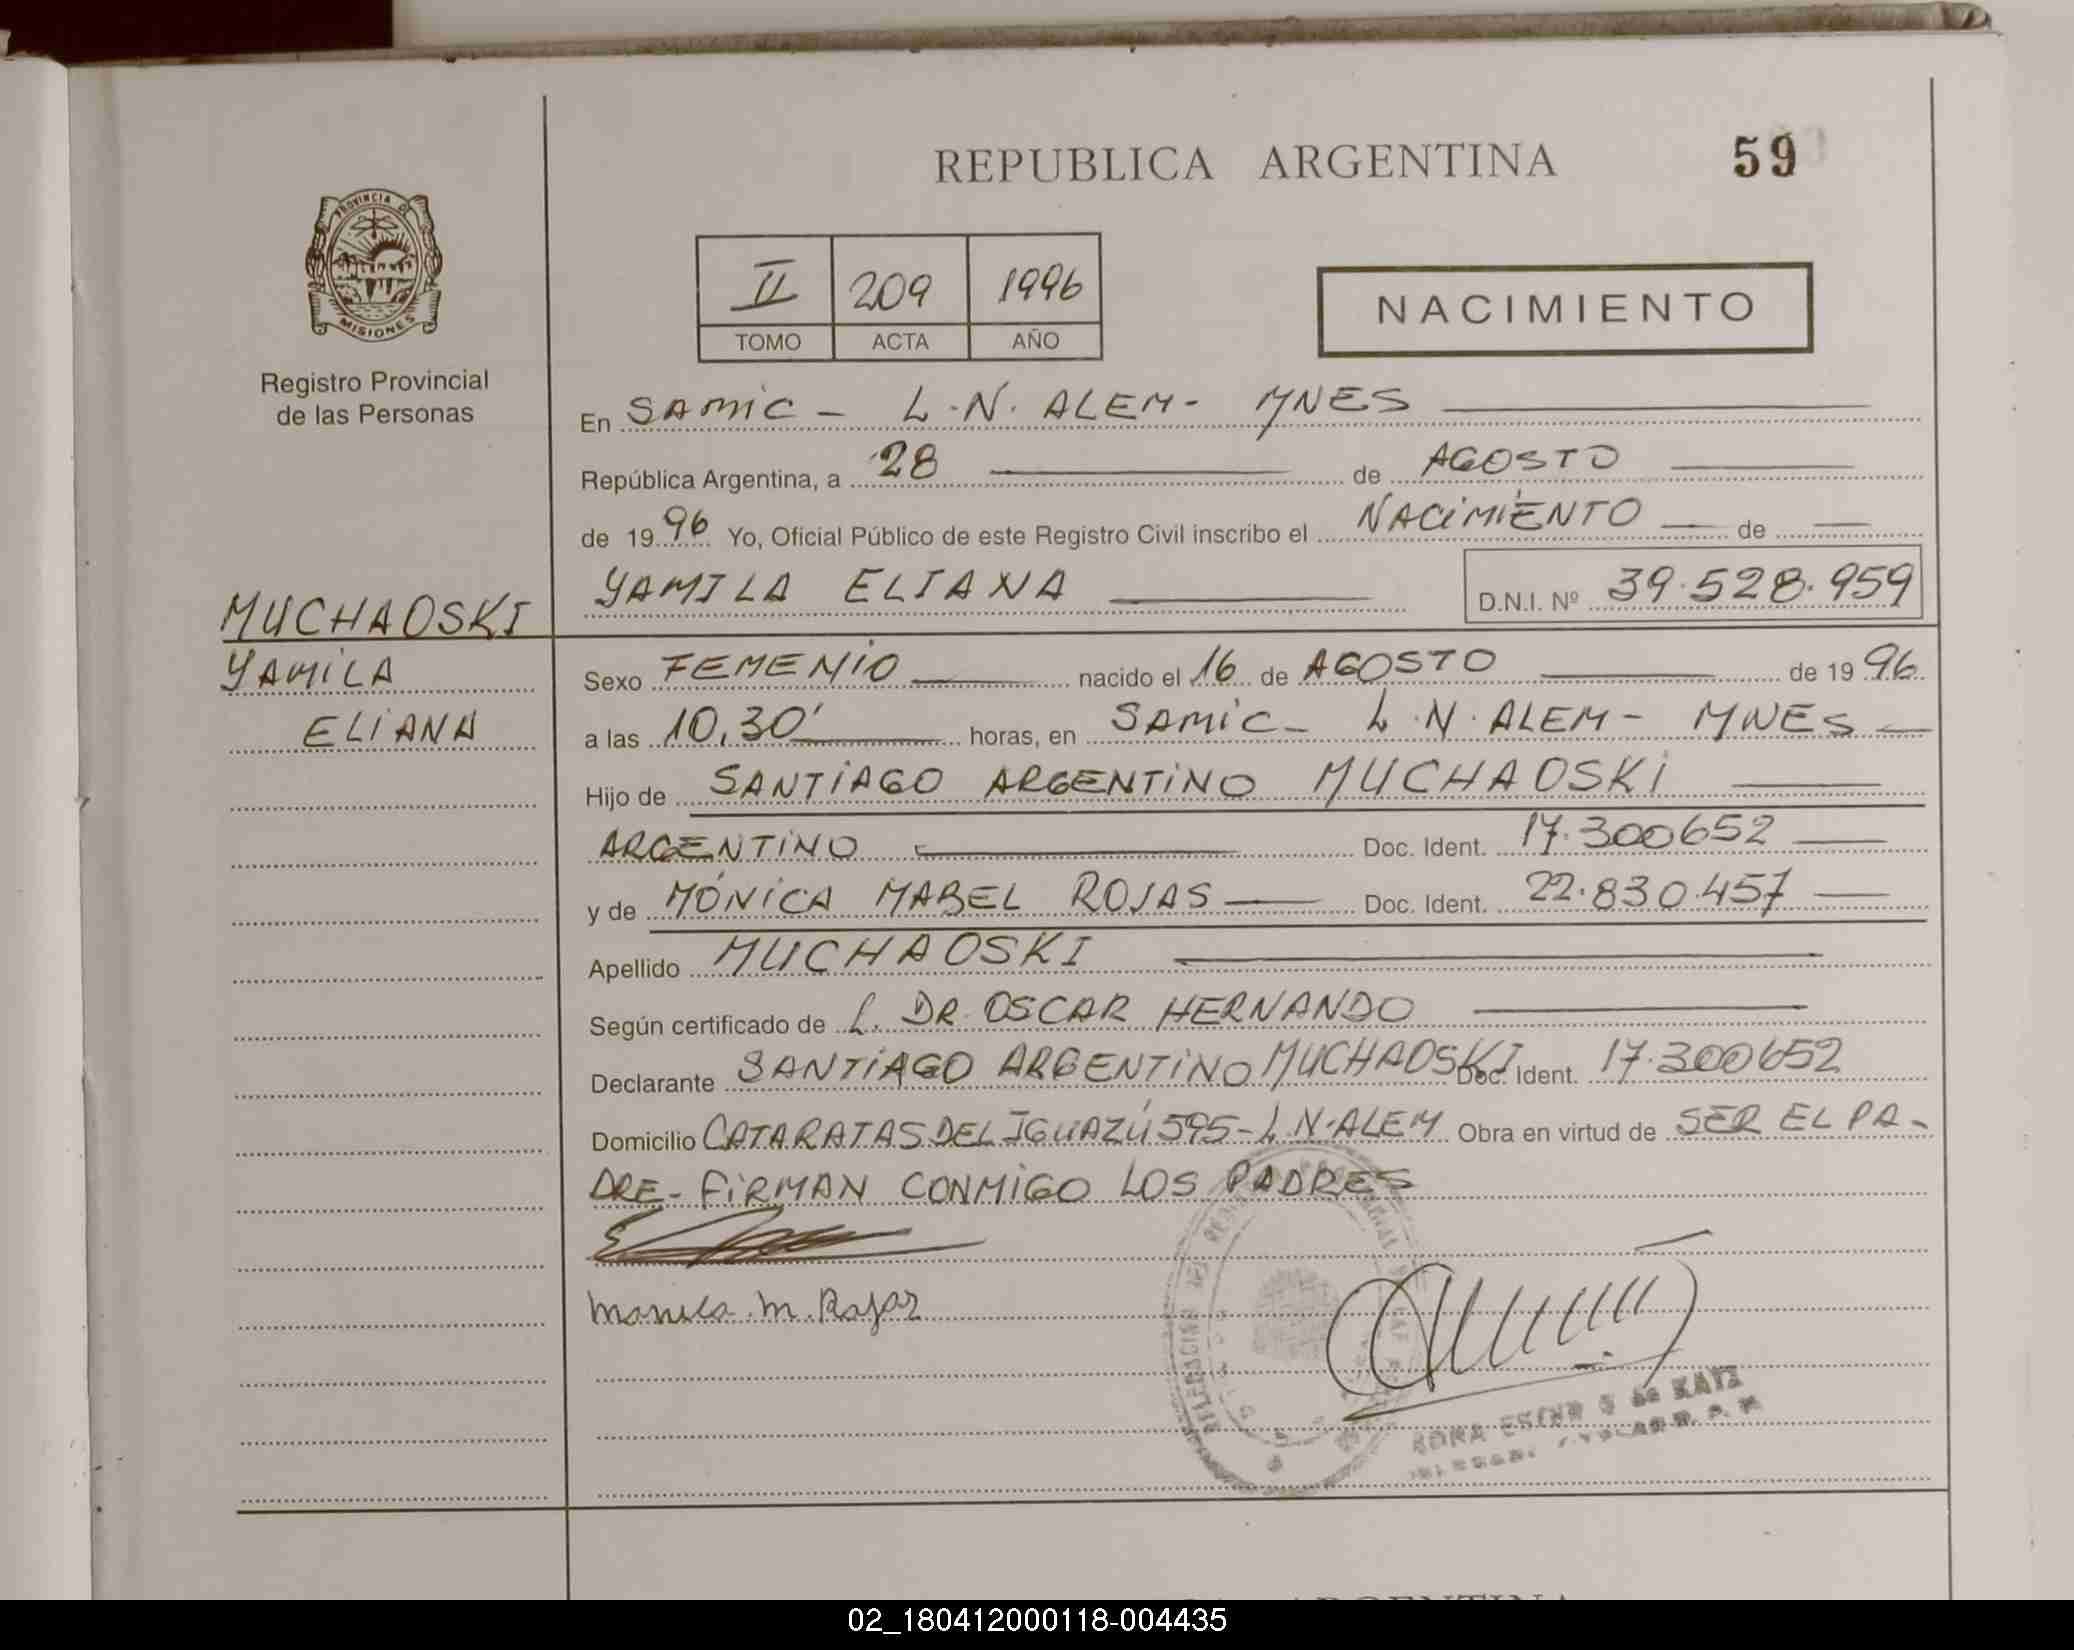 REPUBLICA ARGENTINA
59
PROVINCIA DE
MISIONES
Registro Provincial
de las Personas
II 209 1996
TOMO ACTA AÑO
NACIMIENTO
En SAMIC - L.N. ALEM - MNES
República Argentina, a 28 de AGOSTO
de 1996 Yo, Oficial Público de este Registro Civil inscribo el NACIMIENTO de
YAMILA ELIANA D.N.I. Nº 39.528.959
MUCHAOSKI
YAMILA
ELIANA
Sexo FEMENIO nacido el 16 de AGOSTO de 1996
a las 10,30' horas, en SAMIC - L.N. ALEM - MNES
Hijo de SANTIAGO ARGENTINO MUCHAOSKI
ARGENTINO Doc. Ident. 17.300652
y de MÓNICA MABEL ROJAS Doc. Ident. 22.830.457
Apellido MUCHAOSKI
Según certificado de L. DR. OSCAR HERNANDO
Declarante SANTIAGO ARGENTINO MUCHAOSKI Doc. Ident. 17.300652
Domicilio CATARATAS DEL IGUAZÚ 595 - L.N. ALEM Obra en virtud de SER EL PA-
DRE - FIRMAN CONMIGO LOS PADRES
Monica M. Rojas
de KATZ
ARGENTINA
02_180412000118-004435